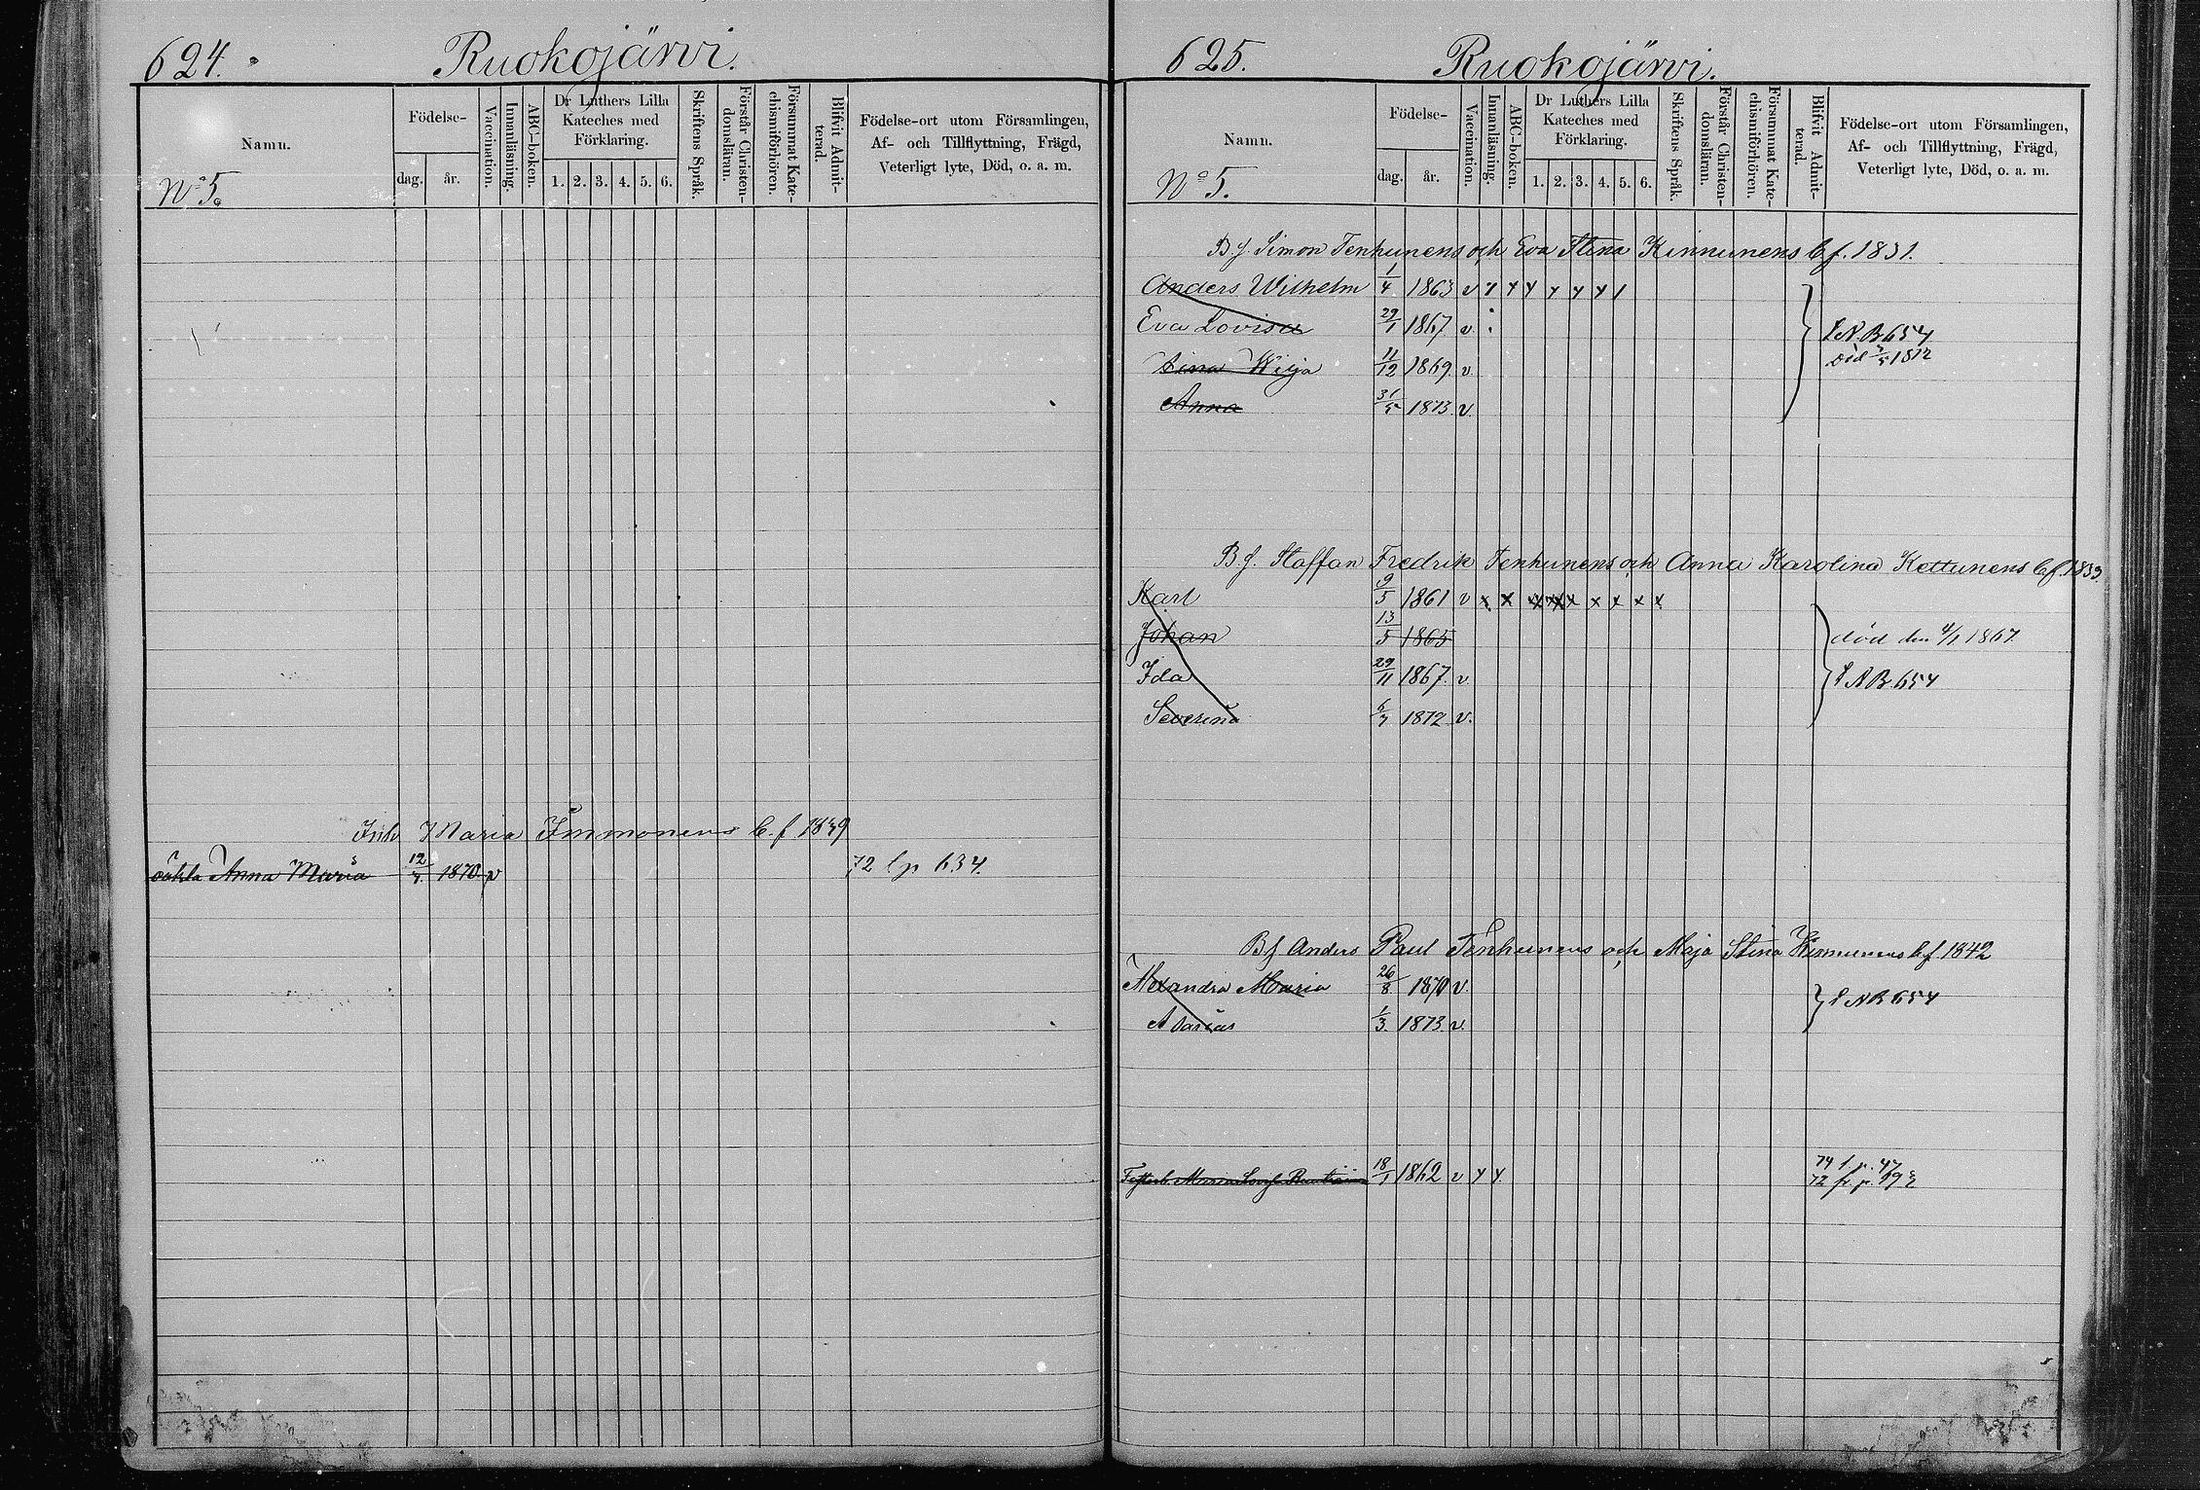 624.
Ruokojärvi.
Namn.
Födelse-
dag.
år.
Vaccination.
Innanläsning.
ABC-boken.
Dr Luthers Lilla
Kateches med
Förklaring.
1. 2. 3. 4. 5. 6.
Skriftens Språk.
Förstår Christen-
domsläran.
Försummat Kate-
chismiförhören.
Blifvit Admit-
terad.
Födelse-ort utom Församlingen,
Af- och Tillflyttning, Frägd,
Veterligt lyte, Död, o. a. m.
No 5.
Inh. Maria Immonens b. f. 1839
oäkta Anna Maria 12/7 1870. v 72 l p 634.
625.
Ruokojärvi.
Namn.
Födelse-
dag.
år.
Vaccination.
Innanläsning.
ABC-boken.
Dr Luthers Lilla
Kateches med
Förklaring.
1. 2. 3. 4. 5. 6.
Skriftens Språk.
Förstår Christen-
domsläran.
Försummat Kate-
chismiförhören.
Blifvit Admit-
terad.
Födelse-ort utom Församlingen,
Af- och Tillflyttning, Frägd,
Veterligt lyte, Död, o. a. m.
No 5.
B. f. Simon Tenhunens och Eva Stina Kinnunens b f. 1831.
Anders Wilhelm 1/4 1863 v
Eva Lovisa 29/1 1867. v. N.B. 654
Wilja 11/12 1869. v. Död 1872
Anna 31/5 1873. v.
B. f. Staffan Fredrik Tenhunens och Anna Karolina Kettunens b f. 1833
Karl 9/5 1861 v x x x x x x x x x
Johan 13/5 1865 död den 4/1 1867.
Ida 29/11 1867. v. N B. 654
Severina 6/7 1872 v.
B f Anders Paul Tenhunens och Maja Stina Kinnunens b f 1842
Alexandra Maria 26/8 1870 v. N B 654
1/3 1873. v.
18/1 1862 v 74 l. p. 47
72 fr. p.